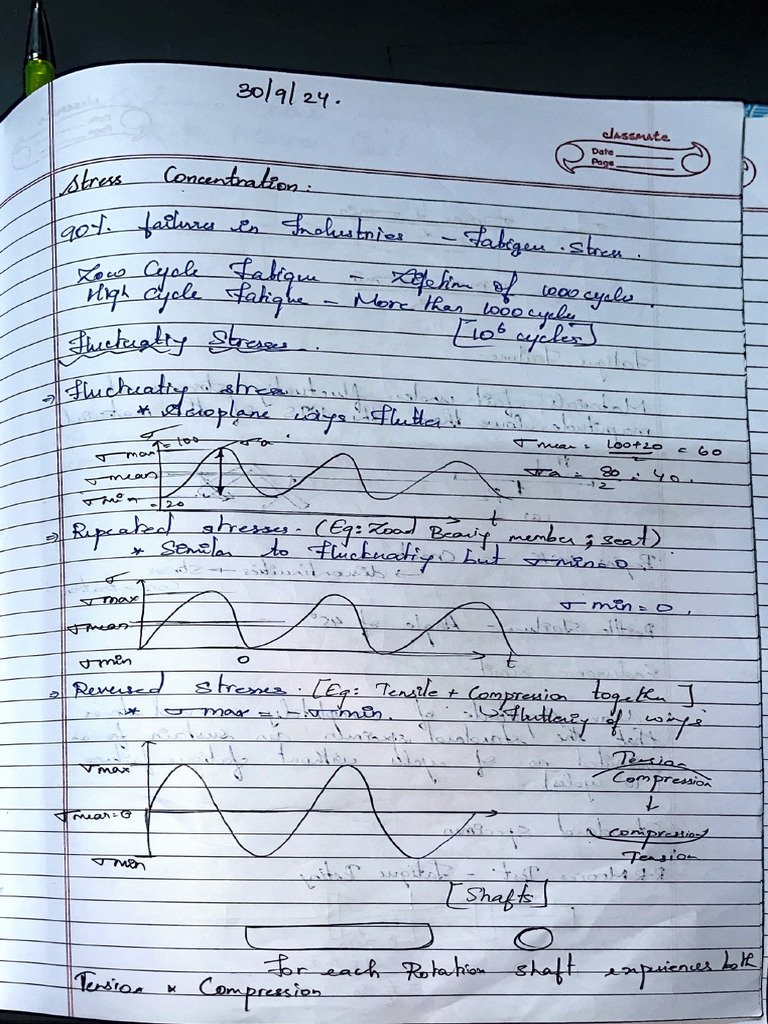 30/9/24.
classmate
Date
Page
Stress Concentration:
90%. failures in Industries - Fatigue stress.
Low Cycle Fatigue - of 1000 cycles.
High Cycle Fatigue - More than 1000 cycles
[10⁶ cycles]
Fluctuating Stresses.
⇒ Fluctuating stress
* Aeroplane wings flutter.
σ
σmax = 100
σa
σmean = 100+20/2 = 60
σmean
σa = 80/2 = 40.
σmin = 20
t
⇒ Repeated stresses. (Eg: Load Bearing member ; seat)
* Similar to Fluctuating, but σmin=0.
σ
σmax
σmin = 0.
σmean
σmin
0
t
⇒ Reversed stresses. [Eg: Tensile + Compression together]
* σmax = -σmin. ↳ Fluttering of wings
σmax
Tension
Compression
↓
σmean=0
compression
Tension
σmin
[Shafts]
For each Rotation shaft experiences both
Tension & Compression